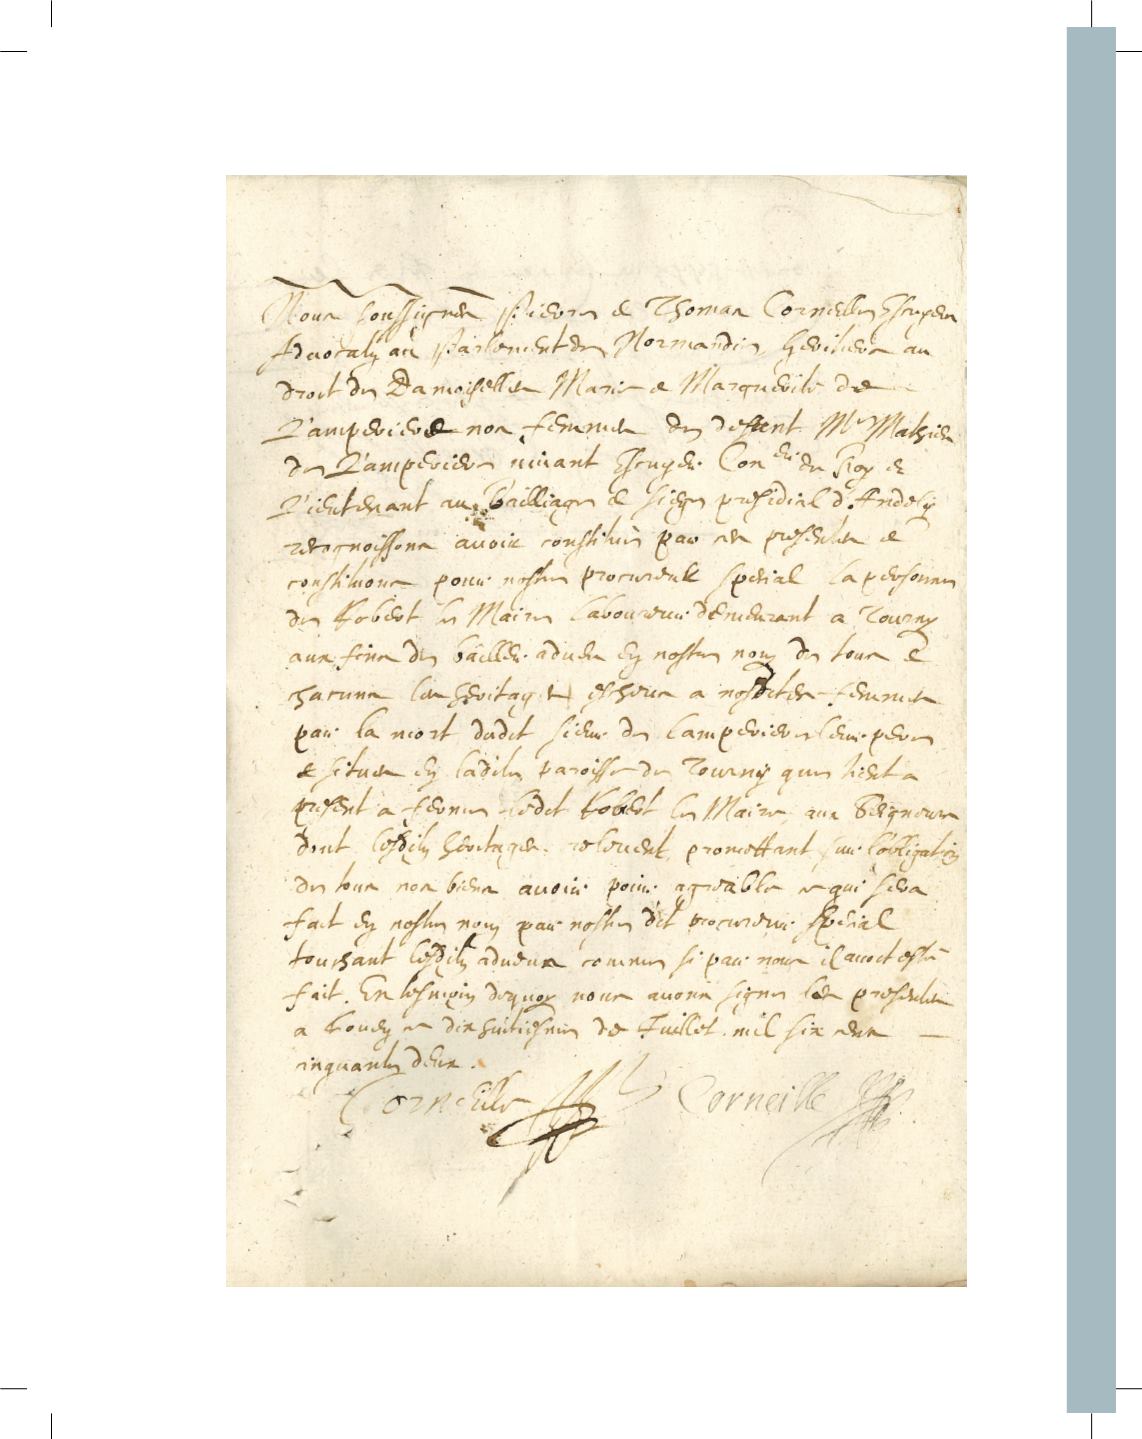 Nous soussignez Pierre et Thomas Corneille Escuyers
Advocatz au Parlement de Normandie, heritiers au
droict de Damoiselles Marie et Marguerite de
Lamperiere nos femmes de defunt Mr Mathieu
de Lamperiere vivant Escuyer Coner du Roy et
Lieutenant au Bailliage et siege presidial d'Andely
recognoissons avoir constitué par ces presentes et
constituons pour nostre procureur special la personne
de Robert le Maire laboureur demeurant a Tourny
aux fins de bailler adveu en nostre nom de tous et
chacuns les heritages escheus a nosdites femmes
par la mort dudit sieur de Lamperiere leur pere
et situez en ladite paroisse de Tourny que tient a
present a ferme ledit Robert le Maire, aux Seigneurs
dont lesdits heritages relevent, promettant sur l'obligation
de tous nos biens avoir pour agreable ce qui sera
fait en nostre nom par nostre dit procureur special
touchant lesdits adveux comme si par nous il avoit esté
fait. En tesmoin dequoy nous avons signé les presentes
a Rouen ce dix huitiesme de Juillet mil six cens
cinquante deux.
Corneille Corneille